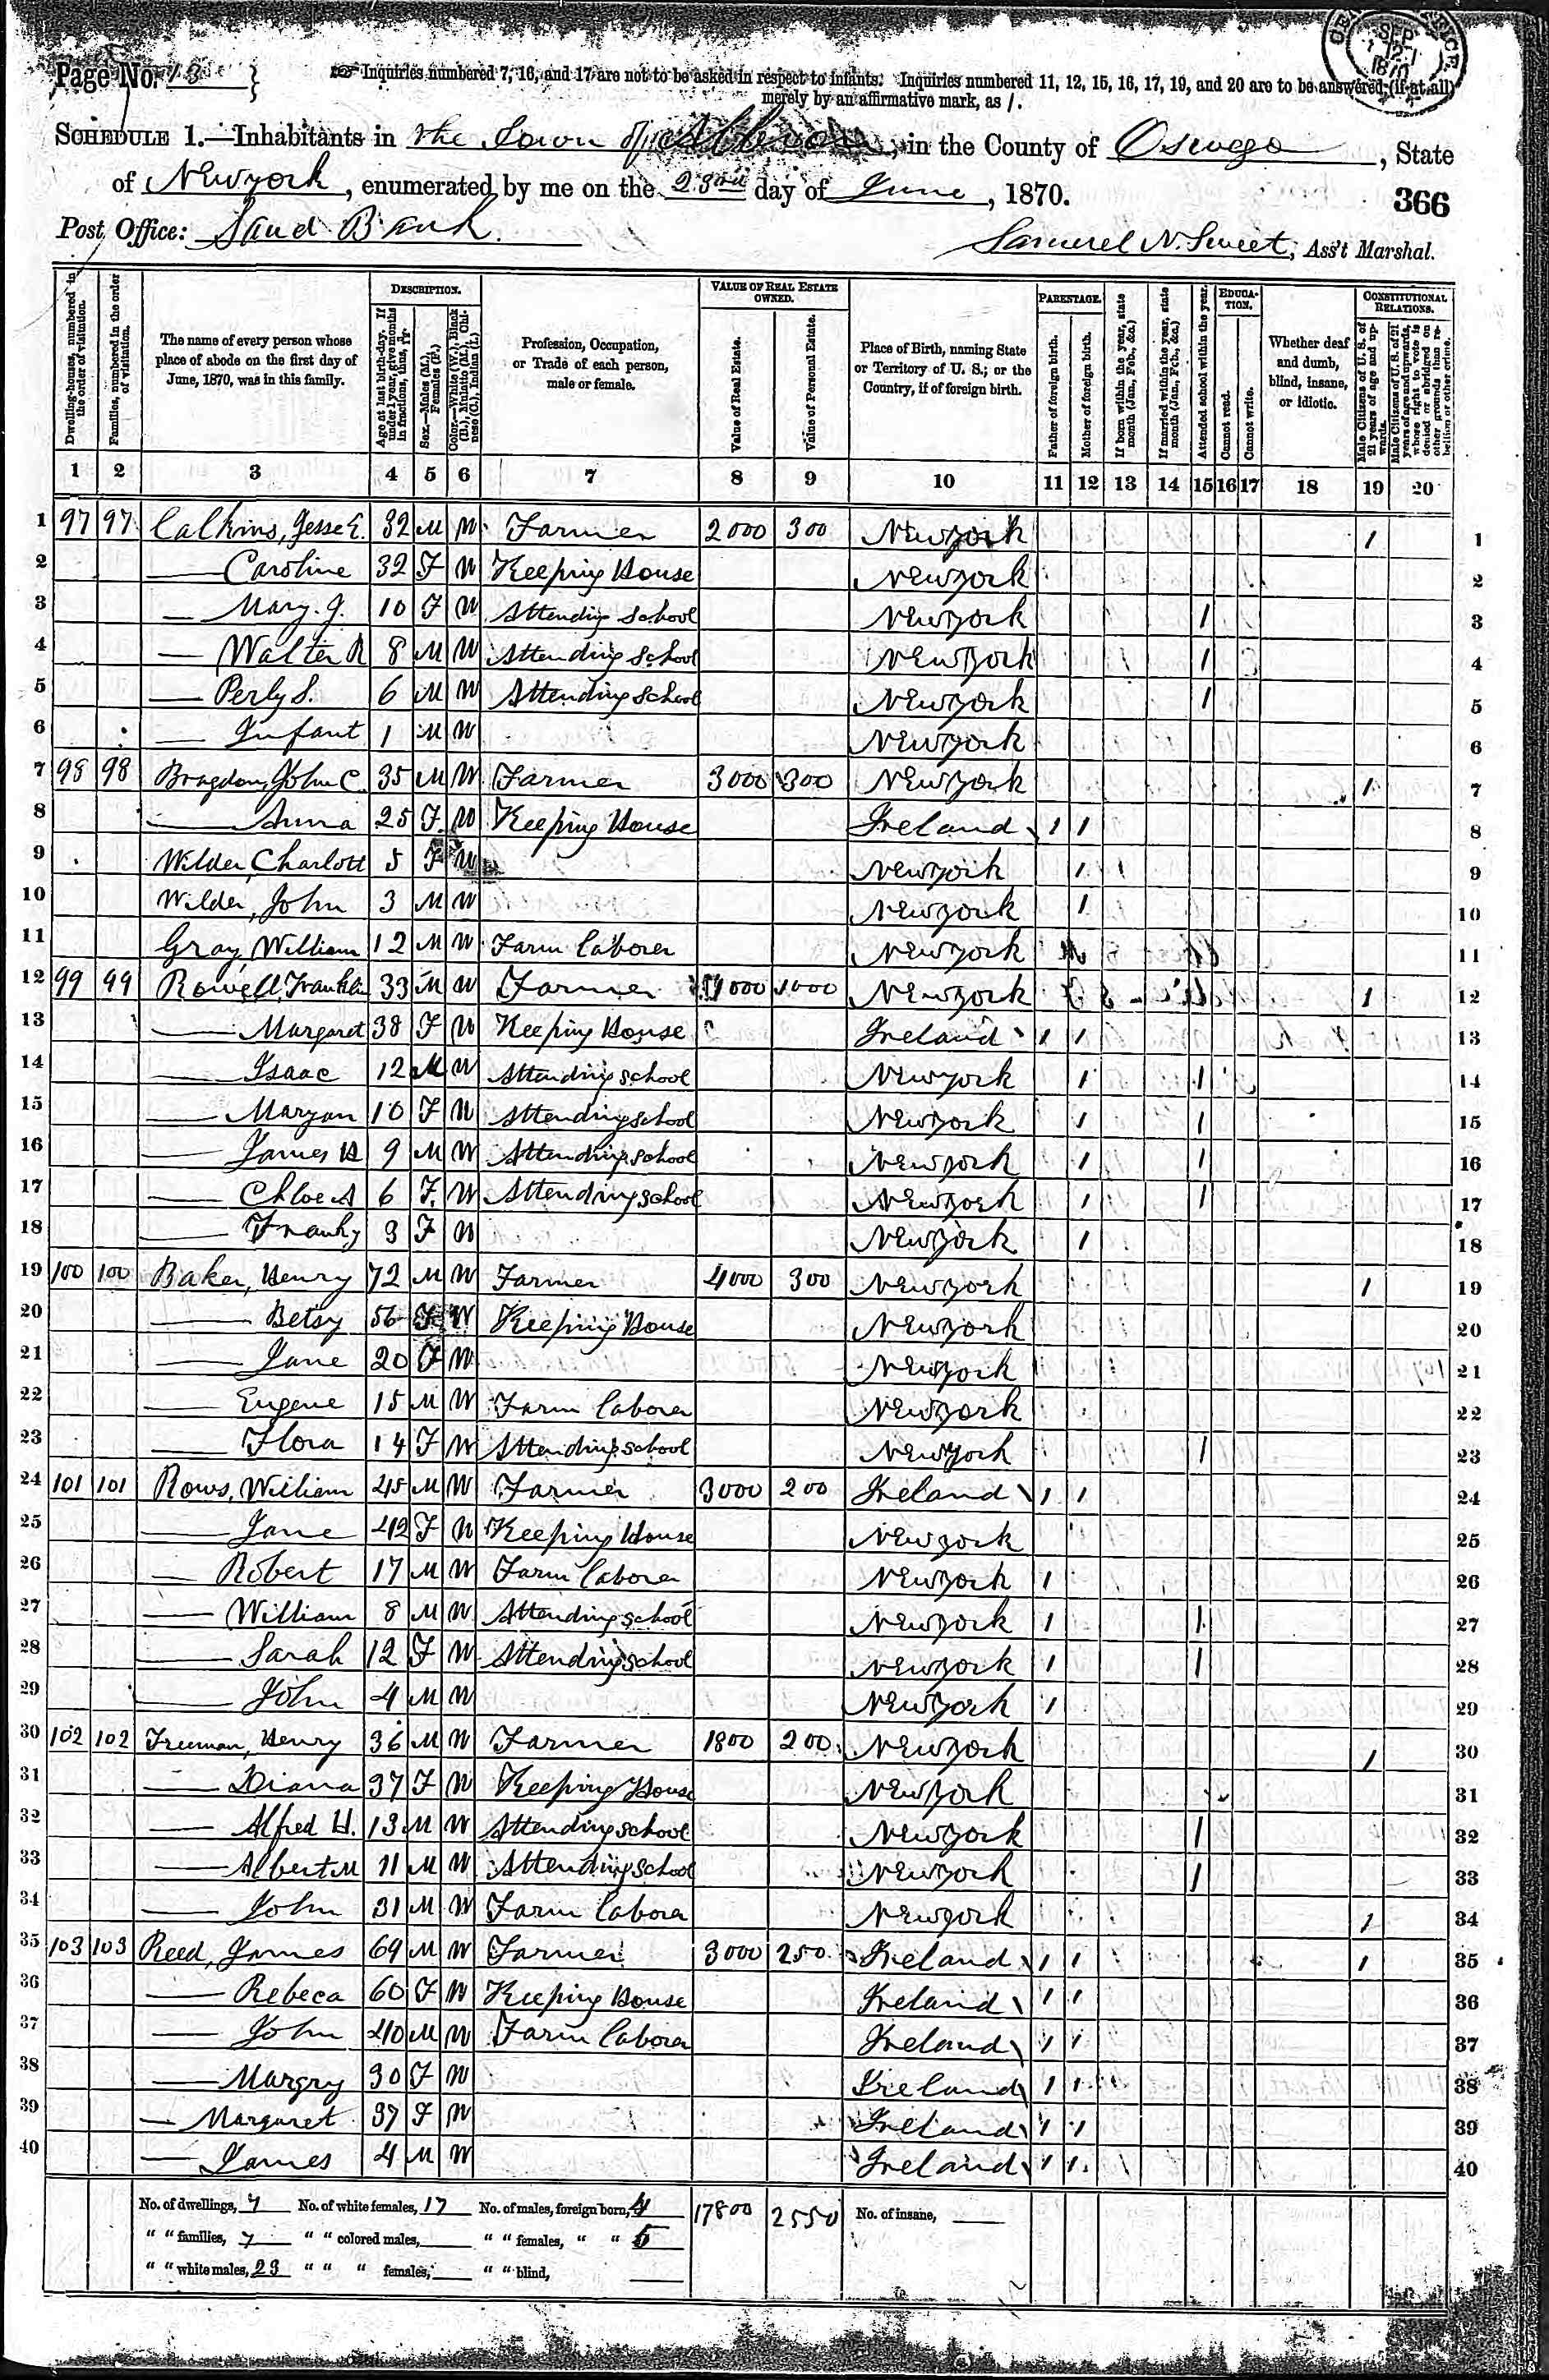 Page No. 13
Inquiries numbered 7, 16, and 17 are not to be asked in respect to infants. Inquiries numbered 11, 12, 15, 16, 17, 19, and 20 are to be answered (if at all)
merely by an affirmative mark, as /.
SEP 1870
SCHEDULE 1.—Inhabitants in the Town of Albion, in the County of Oswego, State
of New york, enumerated by me on the 23rd day of June, 1870.
366
Post Office: Sand Bank.
Samuel N. Sweet, Ass't Marshal.
Dwelling-houses, numbered in the order of visitation.
Families, numbered in the order of visitation.
The name of every person whose place of abode on the first day of June, 1870, was in this family.
DESCRIPTION.
Age at last birth-day. If under 1 year, give months in fractions, thus,
Sex.—Males (M.), Females (F.)
Color.—White (W.), Black (B.), Mulatto (M.), Chinese (C.), Indian (I.)
Profession, Occupation, or Trade of each person, male or female.
VALUE OF REAL ESTATE OWNED.
Value of Real Estate.
Value of Personal Estate.
Place of Birth, naming State or Territory of U. S.; or the Country, if of foreign birth.
PARENTAGE.
Father of foreign birth.
Mother of foreign birth.
If born within the year, state month (Jan., Feb., &c.)
If married within the year, state month (Jan., Feb., &c.)
Attended school within the year.
EDUCATION.
Cannot read.
Cannot write.
Whether deaf and dumb, blind, insane, or idiotic.
CONSTITUTIONAL RELATIONS.
Male Citizens of U. S. of 21 years of age and upwards.
Male Citizens of U. S. of 21 years of age and upwards, whose right to vote is denied or abridged on other grounds than rebellion or other crime.
1 2 3 4 5 6 7 8 9 10 11 12 13 14 15 16 17 18 19 20
1 97 97 Calkins, Jesse E. 32 M W Farmer 2000 300 New york 1 1
2 — Caroline 32 F W Keeping House New york 2
3 — Mary. J. 10 F W Attending School New york 1 3
4 — Walter R 8 M W Attending School New york 1 4
5 — Perly S. 6 M W Attending School New york 1 5
6 — Infant 1 M W New york 6
7 98 98 Bragdon, John C. 35 M W Farmer 3000 300 New york 1 7
8 — Anna 25 F W Keeping House Ireland 1 1 8
9 Wilder, Charlott 5 F W New york 1 9
10 Wilder, John 3 M W New york 1 10
11 Gray, William 12 M W Farm laborer New york 11
12 99 99 Rowell, Franklin 33 M W Farmer 1000 1000 New york 1 12
13 — Margaret 38 F W Keeping House Ireland 1 1 13
14 — Isaac 12 M W Attending school New york 1 1 14
15 — Maryan 10 F W Attending school New york 1 1 15
16 — James H 9 M W Attending school New york 1 1 16
17 — Chloe A 6 F W Attending school New york 1 1 17
18 — Franky 3 F W New york 1 18
19 100 100 Baker, Henry 72 M W Farmer 4000 300 New york 1 19
20 — Betsy 56 F W Keeping House New york 20
21 — Jane 20 F W New york 21
22 — Eugene 15 M W Farm laborer New york 22
23 — Flora 14 F W Attending school New york 1 23
24 101 101 Rows, William 45 M W Farmer 3000 200 Ireland 1 1 24
25 — Jane 42 F W Keeping House New york 25
26 — Robert 17 M W Farm laborer New york 1 26
27 — William 8 M W Attending school New york 1 1 27
28 — Sarah 12 F W Attending school New york 1 1 28
29 — John 4 M W New york 1 29
30 102 102 Freeman, Henry 36 M W Farmer 1800 200 New york 1 30
31 — Diana 37 F W Keeping House New york 31
32 — Alfred H. 13 M W Attending school New york 1 32
33 — Albert M 11 M W Attending school New york 1 33
34 — John 31 M W Farm laborer New york 1 34
35 103 103 Reed, James 69 M W Farmer 3000 250 Ireland 1 1 1 35
36 — Rebeca 60 F W Keeping House Ireland 1 1 36
37 — John 40 M W Farm laborer Ireland 1 1 37
38 — Margry 30 F W Ireland 1 1 38
39 — Margaret 37 F W Ireland 1 1 39
40 — James 4 M W Ireland 1 1 40
No. of dwellings, 7 No. of white females, 17 No. of males, foreign born, 4 17800 2550 No. of insane, —
" " families, 7 " " colored males, — " " females, " " 5
" " white males, 23 " " " females, — " " blind, —